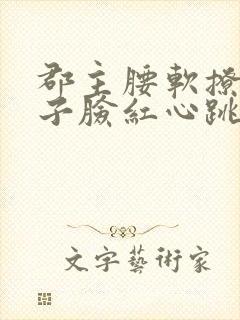 郡主腰軟撩
子臉紅心跳
文字藝術家